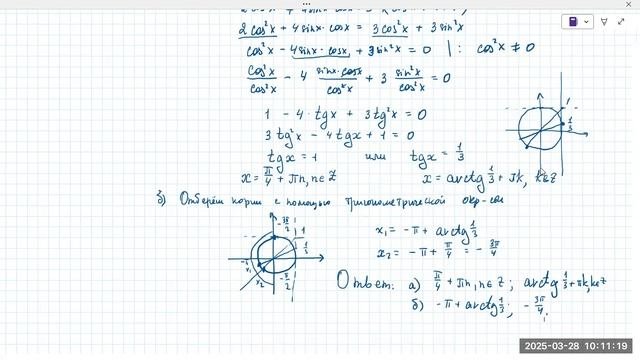 2cos²x + 4sinx·cosx = 3cos²x + 3sin²x
cos²x - 4sinx·cosx + 3sin²x = 0 | : cos²x ≠ 0
cos²x/cos²x - 4 sinx·cosx/cos²x + 3 sin²x/cos²x = 0
1 - 4·tgx + 3tg²x = 0
3tg²x - 4tgx + 1 = 0
tgx = 1 или tgx = 1/3
x = π/4 + πn, n∈Z x = arctg 1/3 + πk, k∈Z
1
1/3
Отберём корни с помощью тригонометрической окр-сти
-3π/2
1
1/3
-π
x₁
x₂
-π/2
x₁ = -π + arctg 1/3
x₂ = -π + π/4 = -3π/4
Ответ: а) π/4 + πn, n∈Z; arctg 1/3 + πk, k∈Z
б) -π + arctg 1/3; -3π/4.
2025-03-28 10:11:19